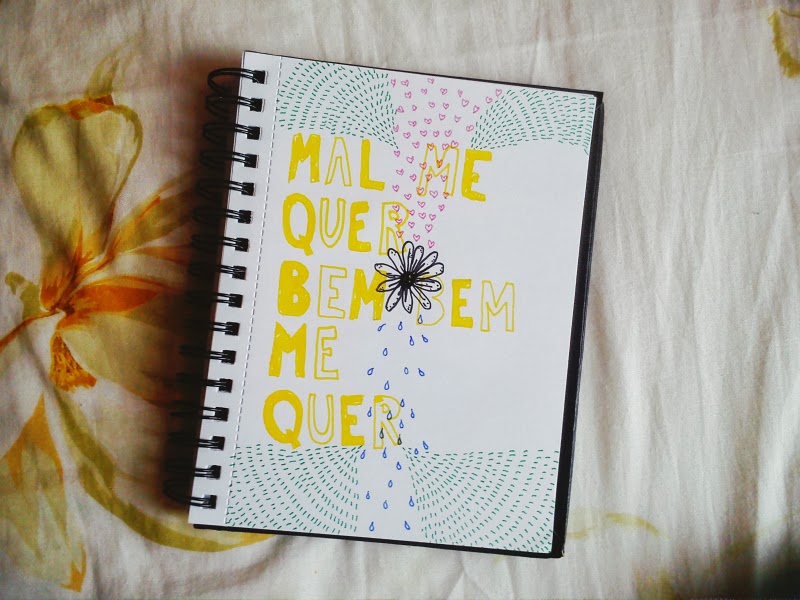 MAL ME
QUER
BEM BEM
ME
QUER